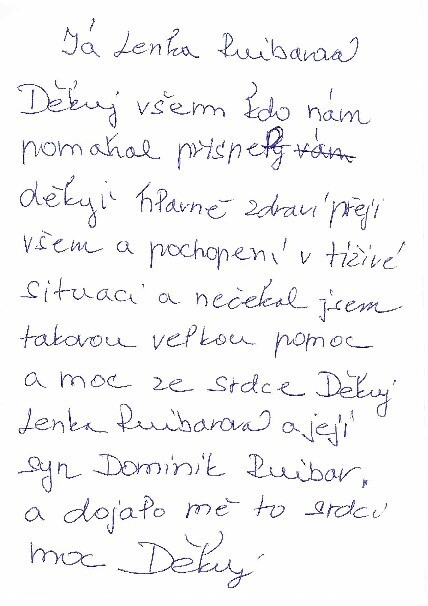 Já Lenka Ruibarová
Děkuj všem kdo nám
pomáhal přispěly vám
děkyji hlavně zdraví přeji
všem a pochopení v tíživé
situaci a nečekal jsem
takovou velkou pomoc
a moc ze srdce Děkuj
Lenka Ruibarová a její
syn Dominik Ruibar,
a dojalo mě to srdci
moc Děkuj